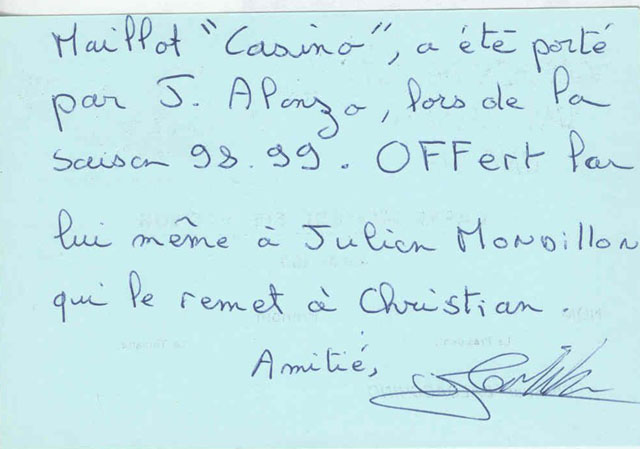 Maillot "Casino", a été porté
par J. Alonzo, lors de la
saison 98.99. OFFert par
lui même à Julien MONDILLON
qui le remet à Christian.
Amitié,